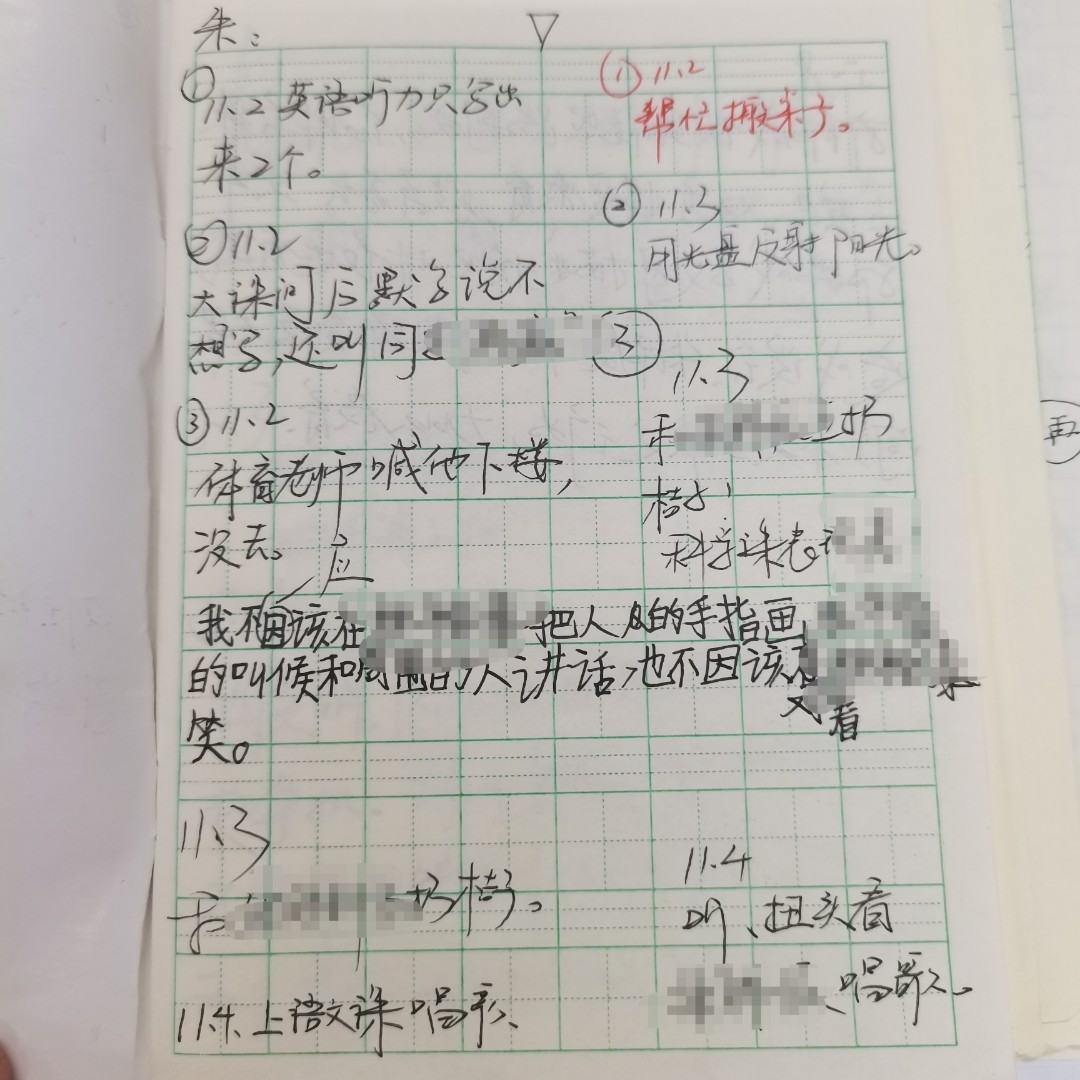 朱：
① 11.2 英语听力只写出
来2个。
② 11.2
大课间后默写说不
想写，还叫同
③ 11.2
体育老师喊他下楼，
没去。
应
我不因该在 把人及的手指画
的叫候和 的人讲话，也不因该
又看
笑。
11.3
于 扔桔子。
11.4 上语文课唱歌、
① 11.2
帮忙搬桌子。
② 11.3
用光盘反射阳光。
③
11.3
于 扔
桔子
科学课表
11.4
听、扭头看
、唱歌。
再